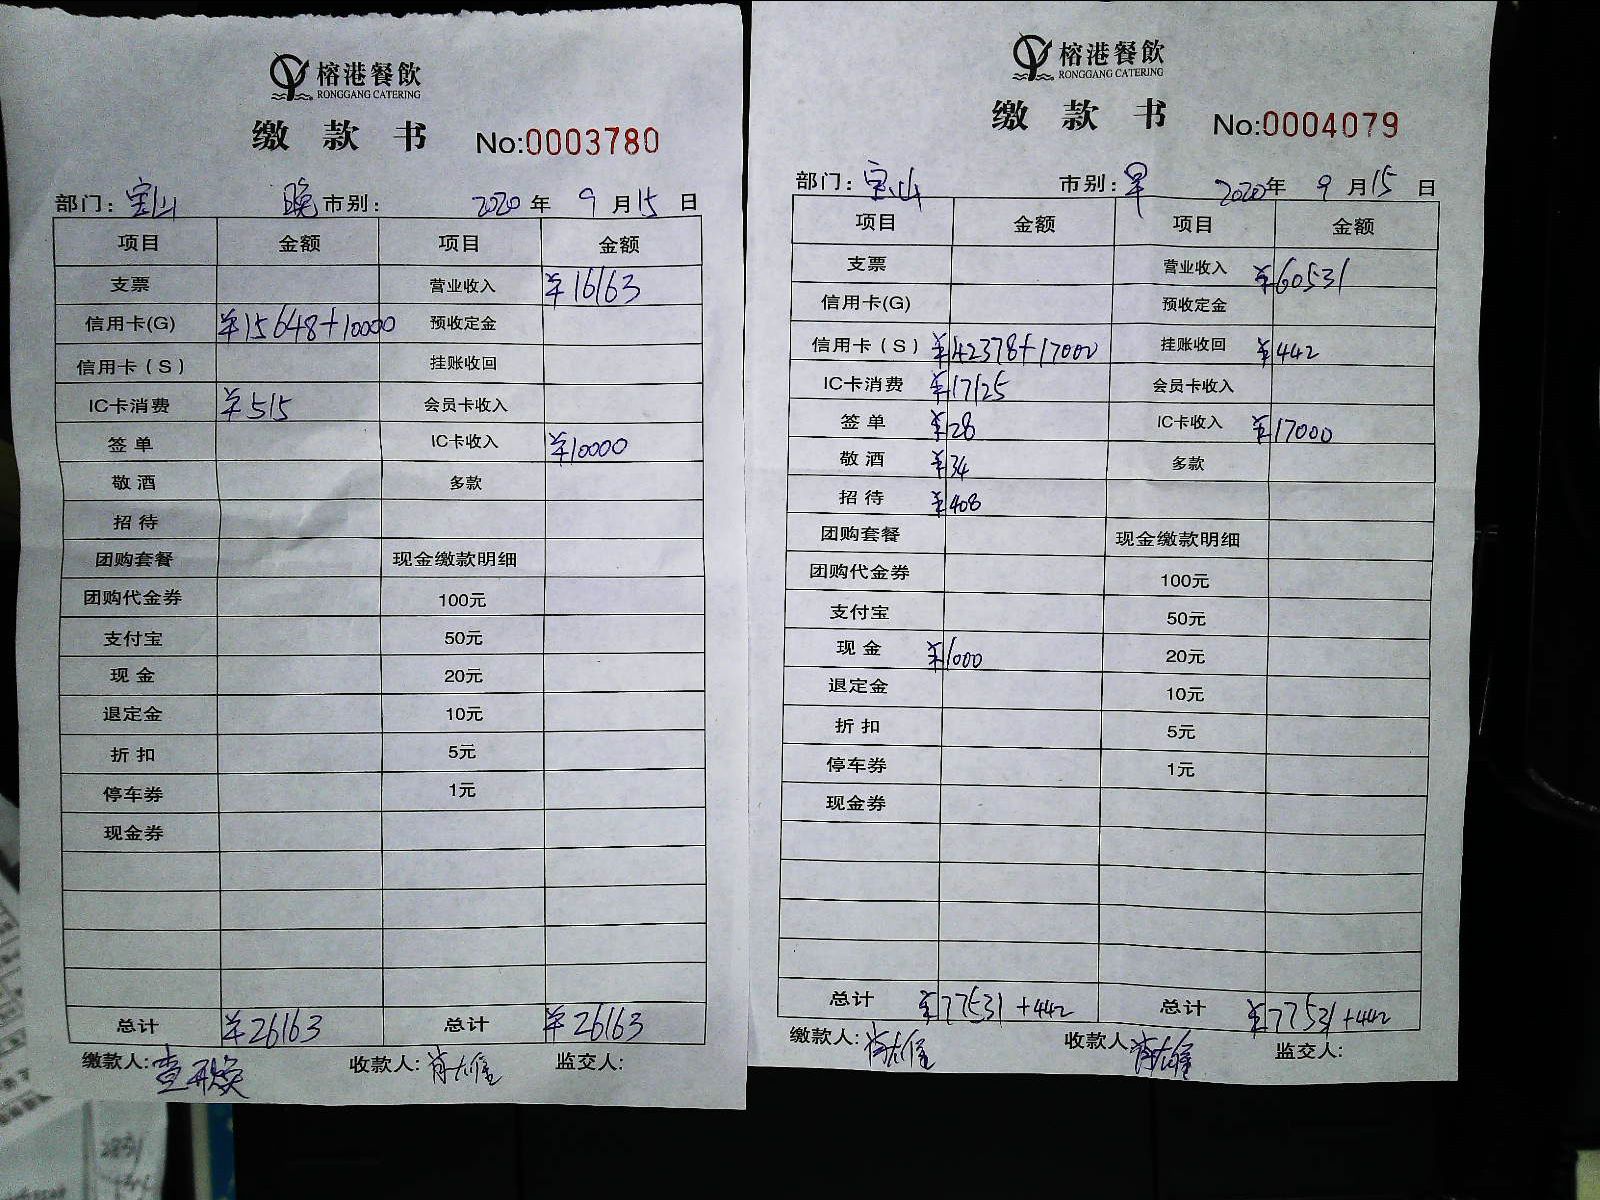 榕港餐飲
RONGGANG CATERING
缴款书 No:0003780
部门: 宝山 晚市别: 2020年 9月15日
项目 金额 项目 金额
支票 营业收入 ¥16163
信用卡(G) ¥15648+10000 预收定金
信用卡(S) 挂账收回
IC卡消费 ¥515 会员卡收入
签单 IC卡收入 ¥10000
敬酒 多款
招待
团购套餐 现金缴款明细
团购代金券 100元
支付宝 50元
现金 20元
退定金 10元
折扣 5元
停车券 1元
现金券
总计 ¥26163 总计 ¥26163
缴款人: 收款人: 肖大雄 监交人:
榕港餐飲
RONGGANG CATERING
缴款书 No:0004079
部门: 宝山 市别: 早 2020年 9月15日
项目 金额 项目 金额
支票 营业收入 ¥60531
信用卡(G) 预收定金
信用卡(S) ¥42378+17000 挂账收回 ¥442
IC卡消费 ¥17125 会员卡收入
签单 ¥28 IC卡收入 ¥17000
敬酒 ¥34 多款
招待 ¥408
团购套餐 现金缴款明细
团购代金券 100元
支付宝 50元
现金 ¥1000 20元
退定金 10元
折扣 5元
停车券 1元
现金券
总计 ¥77531+442 总计 ¥77531+442
缴款人: 肖大雄 收款人: 肖大雄 监交人: